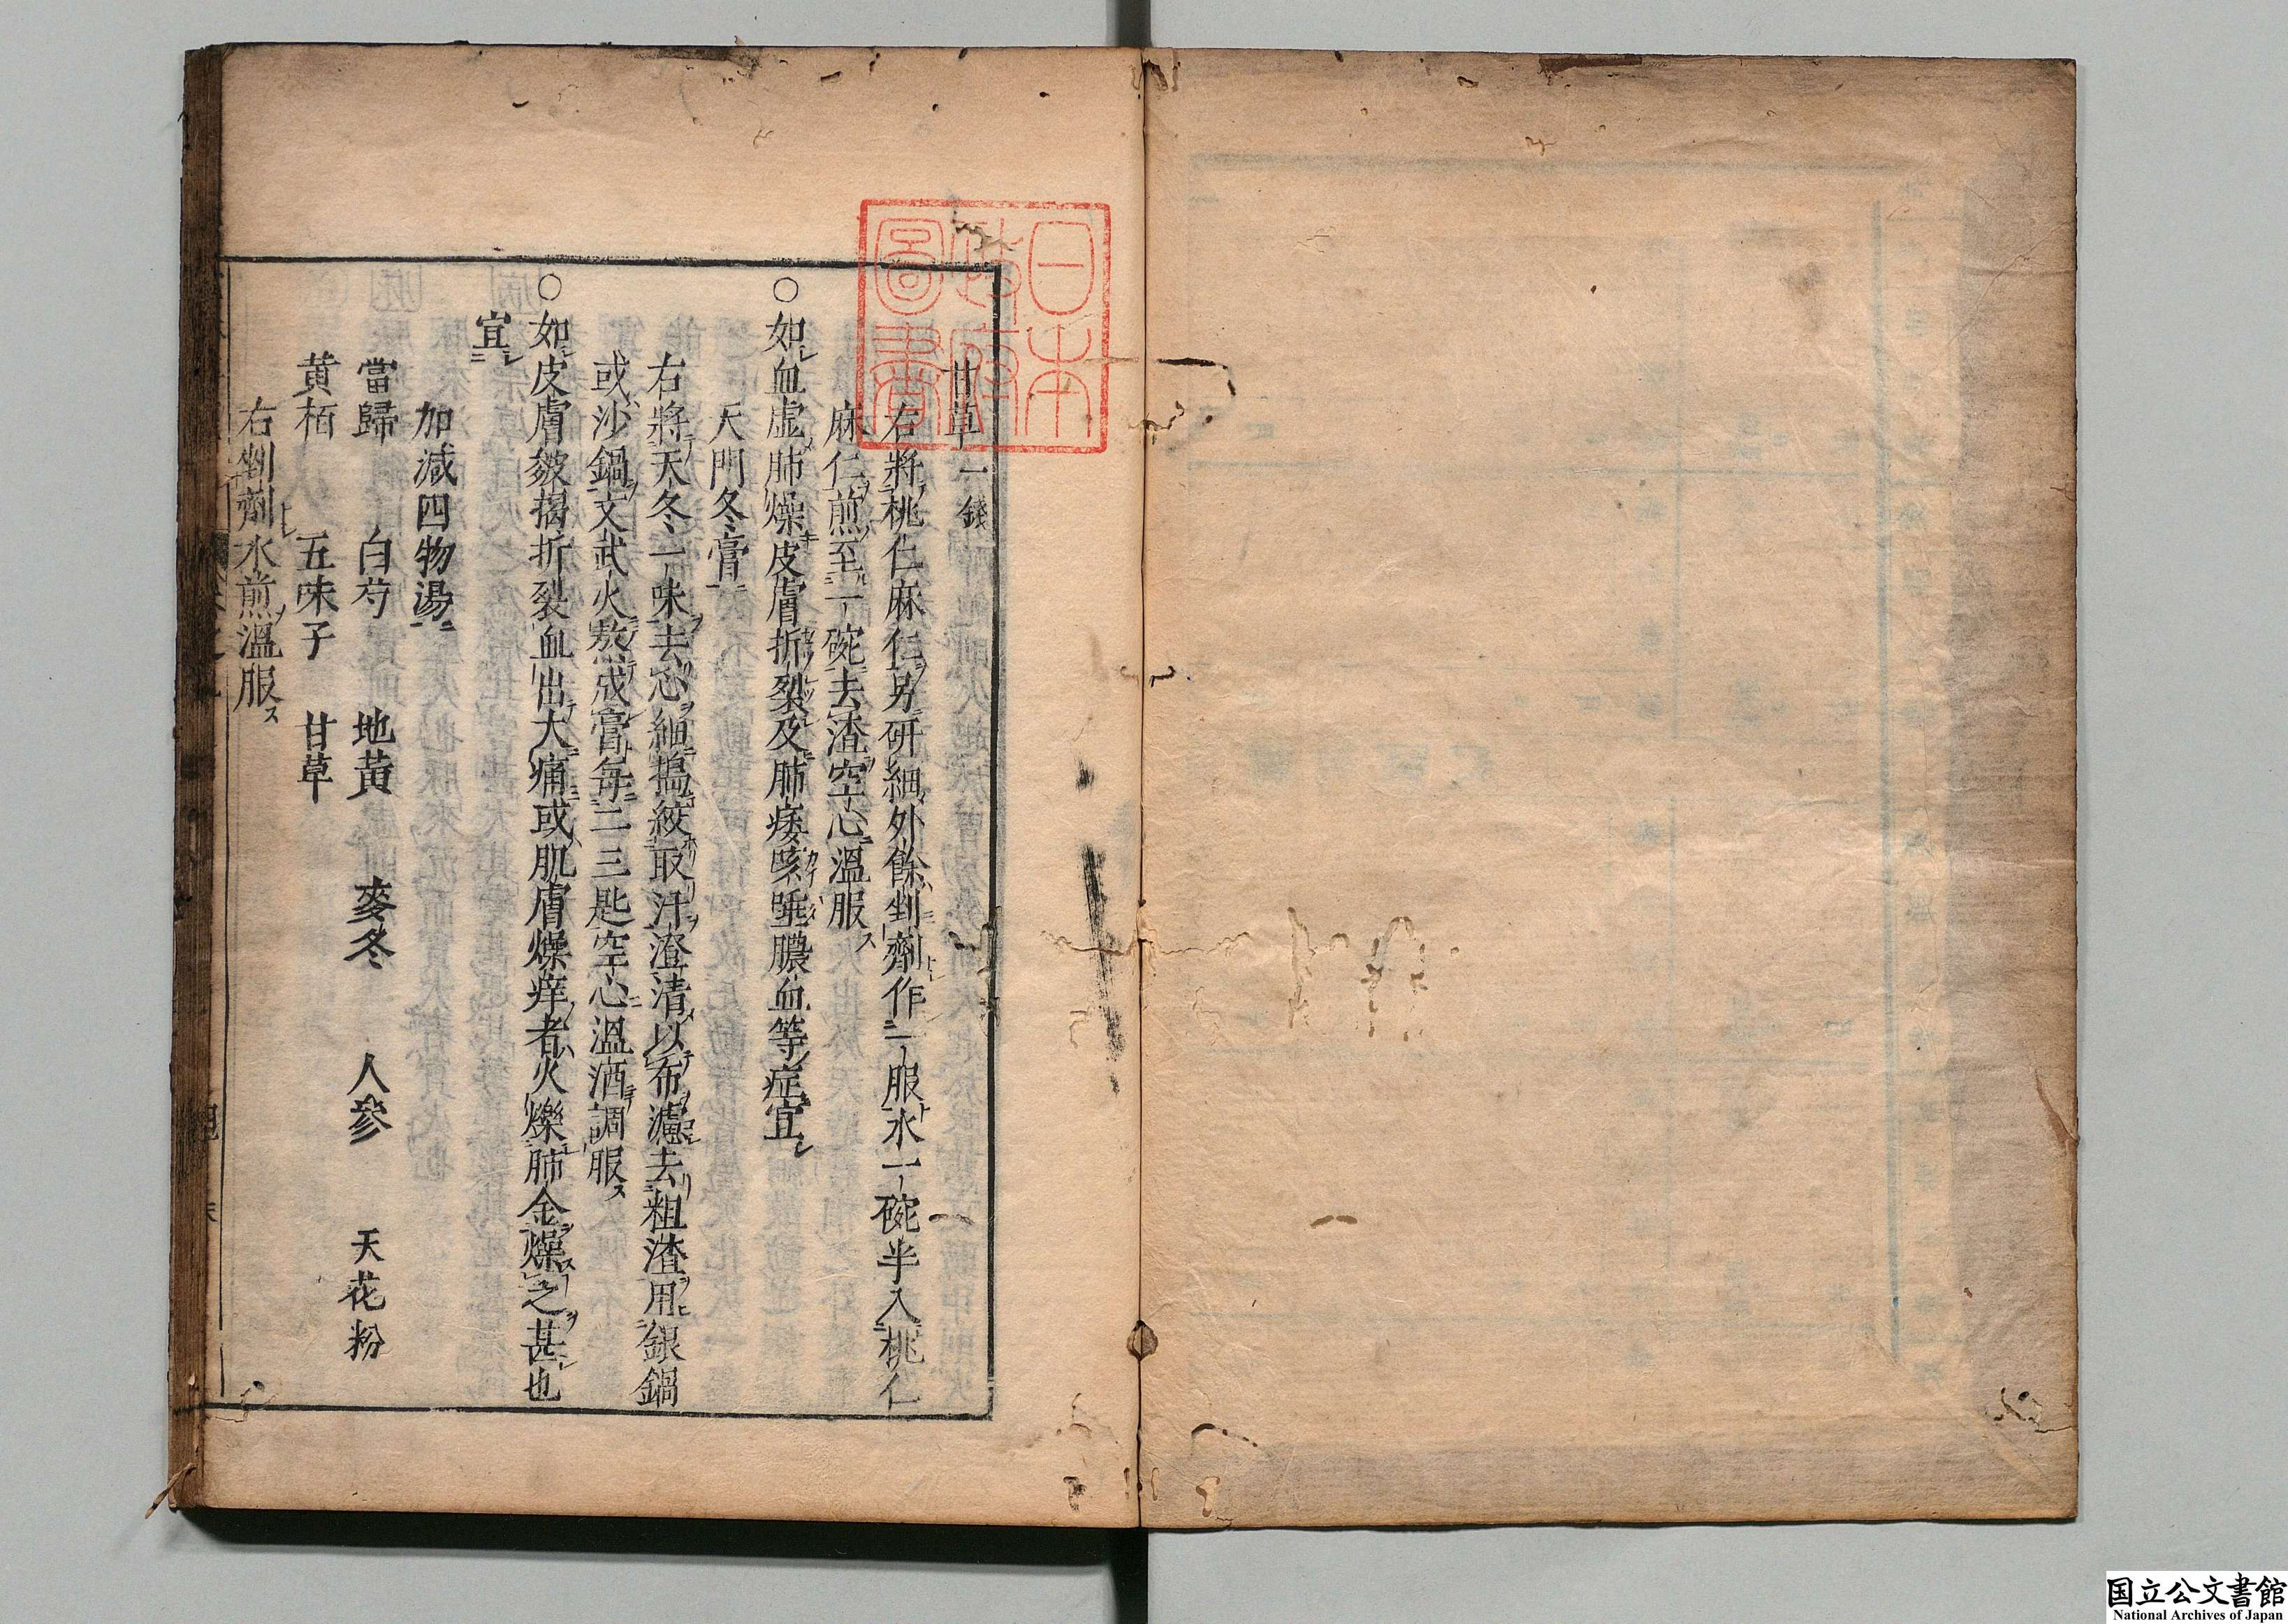 甘草一錢
右將桃仁麻仁另研細外餘剉劑作一服水一碗半入桃仁
麻仁煎至一碗去渣空心溫服ス
○如血虛肺燥皮膚折裂及肺痿咳唾膿血等症宜
天門冬膏
右將天冬一味去心細搗絞取汁澄清以布濾去粗渣用銀鍋
或沙鍋文武火熬成膏每二三匙空心溫酒調服ス
○如皮膚皴揭折裂血出大痛或肌膚燥痒者火爍肺金燥之甚也
宜
加減四物湯
當歸 白芍 地黃 麥冬 人參 天花粉
黄栢 五味子 甘草
右剉劑水煎溫服ス
日本
政府
圖書
国立公文書館
National Archives of Japan